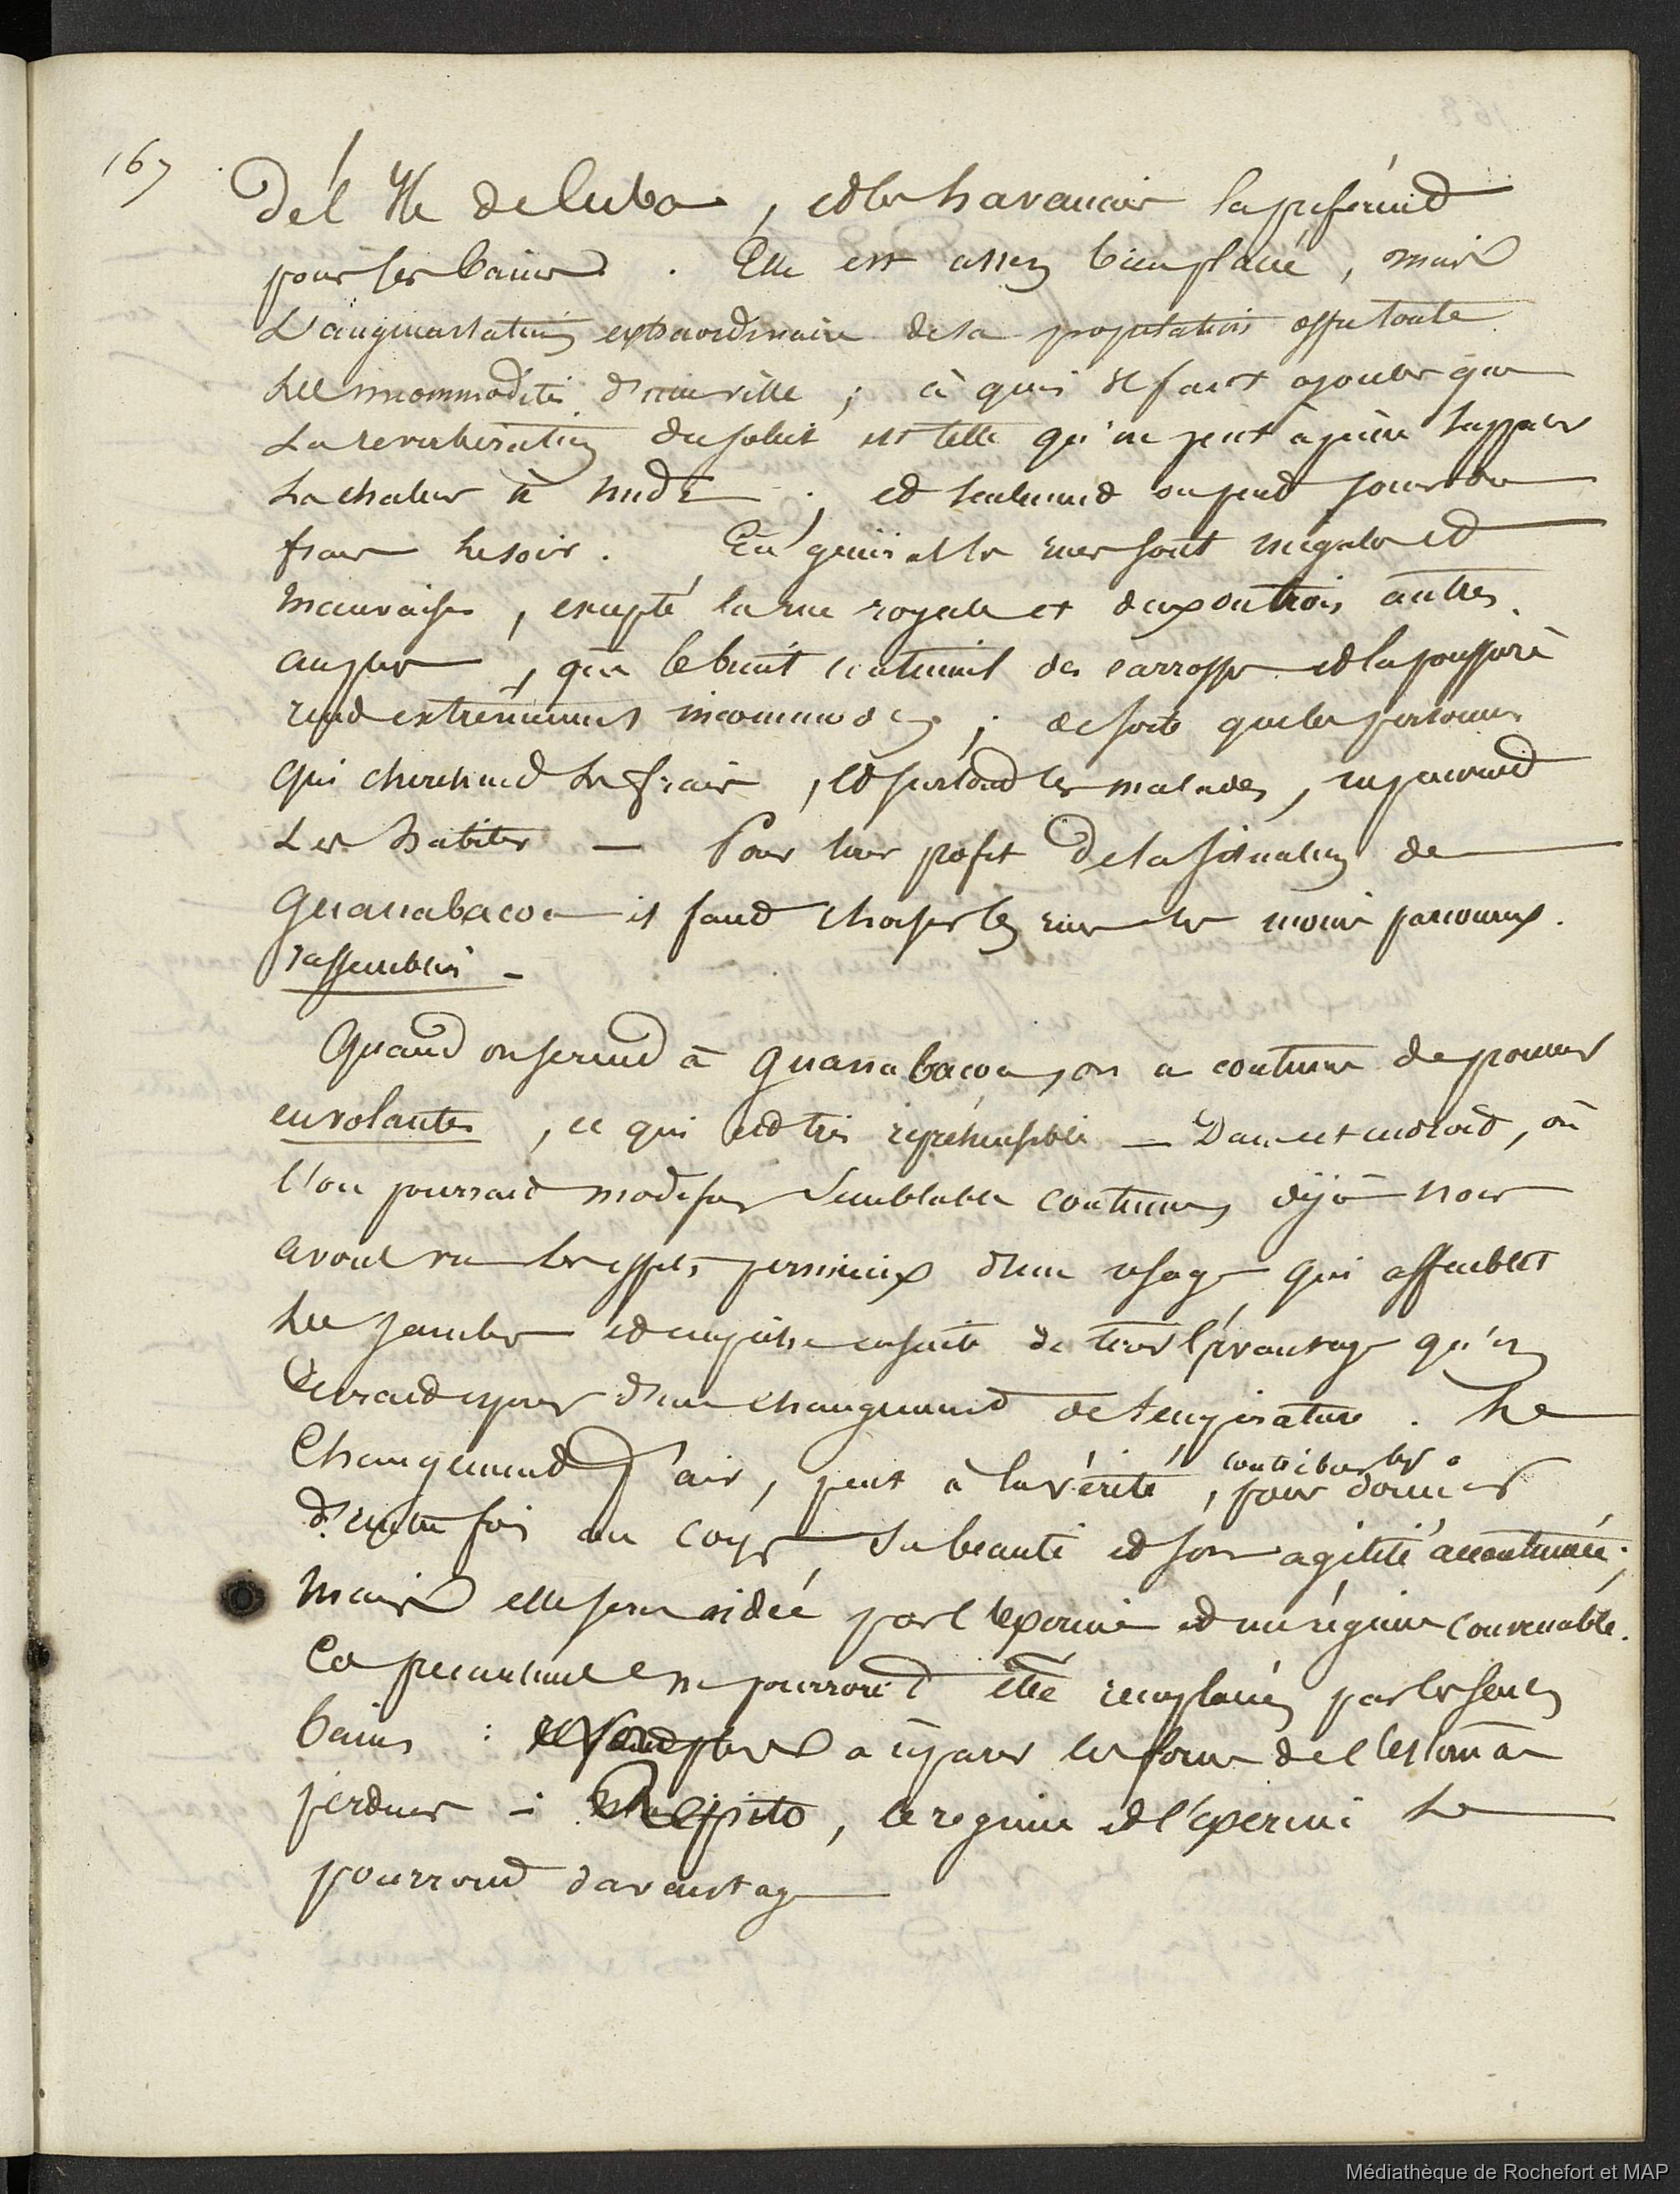 167
De l'Ile de Cuba, et les havanais la préferent
pour ses bains. Elle est assez bien placée, mais
L'augmentation extraordinaire de sa population offre toute
les incommodités d'une ville ; à quoi il faut ajouter que
La reverbération du soleil est telle qu'on peut à peine supporter
La chaleur à midi ; et seulement on peut jouir du
frais le soir. En général les rues sont inégales et
mauvaises, excepté la rue royale et deux ou trois autres
amples, que le bruit continuel des carrosses et la poussière
rend extrêmement incommodes ; de sorte que les personnes
qui cherchent le frais, et surtout les malades, ne peuvent
Les habiter — Pour tirer profit de la situation de
Guanabacoa il faut choisir les rues les moins parcourues.
rassemblés -
Quand on se rend à Guanabacoa, on a coutume de
en volantes, ce qui est très répréhensible — Dans cet endroit, où
l'on pourrait modifier semblables coutumes, déjà nous
avons vu les effets pernicieux d'un usage qui affaiblit
les jambes et empêche ensuite de tirer l'avantage qu'on
devrait espérer d'un changement de température. Le
Changement d'air, peut à la vérité, contribuer pour donner
au corps sa beauté et son agilité accoutumée ;
Mais elle sera aidée par l'exercice et un régime convenable.
Ces ne pourront être remplacés par les seuls
bains : à réparer les forces de l'estomac
perdues : , le régime et l'exercice le
pourront davantage
Médiathèque de Rochefort et MAP